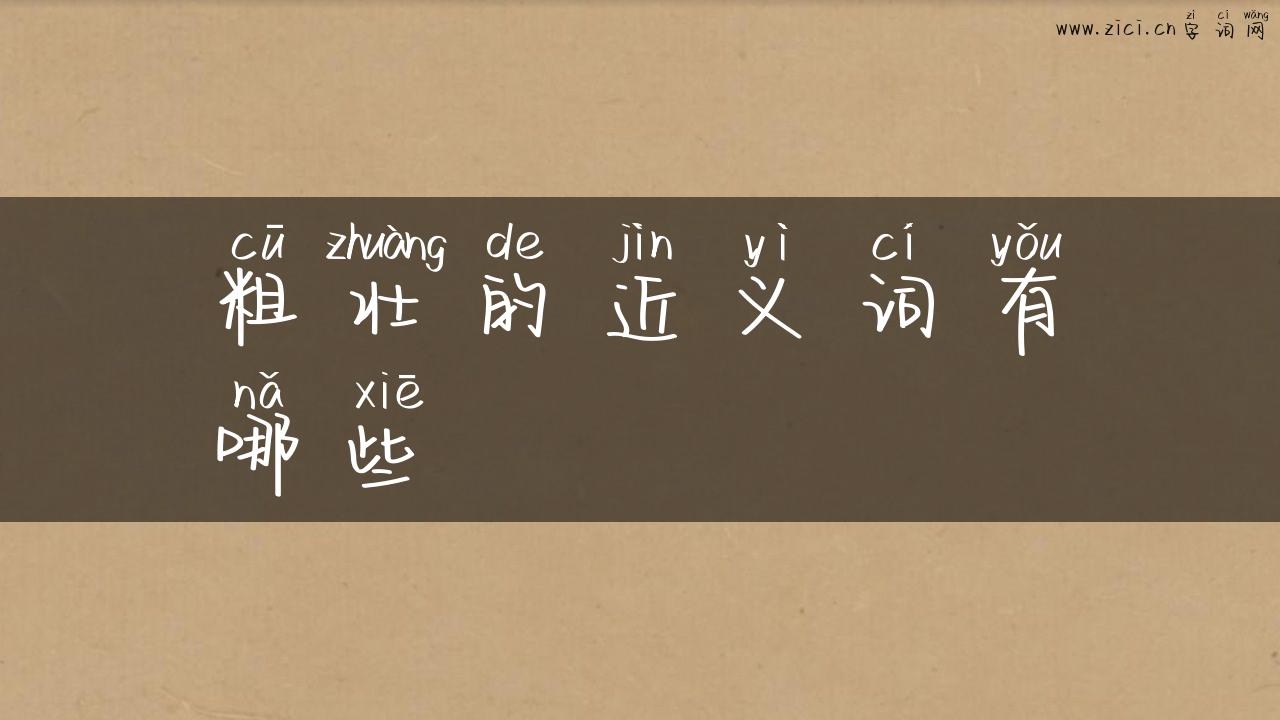 zì cí wǎng
www.zici.cn 字词网
cū zhuàng de jìn yì cí yǒu
粗壮的近义词有
nǎ xiē
哪些